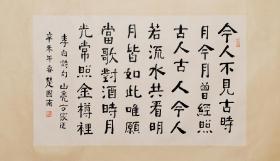 今人不見古時
月今月曾經照
古人古人今人
若流水共看明
月皆如此唯願
當歌對酒時月
光常照金樽裡
李白詩句 山亮方家正
辛未年春 楚圖南